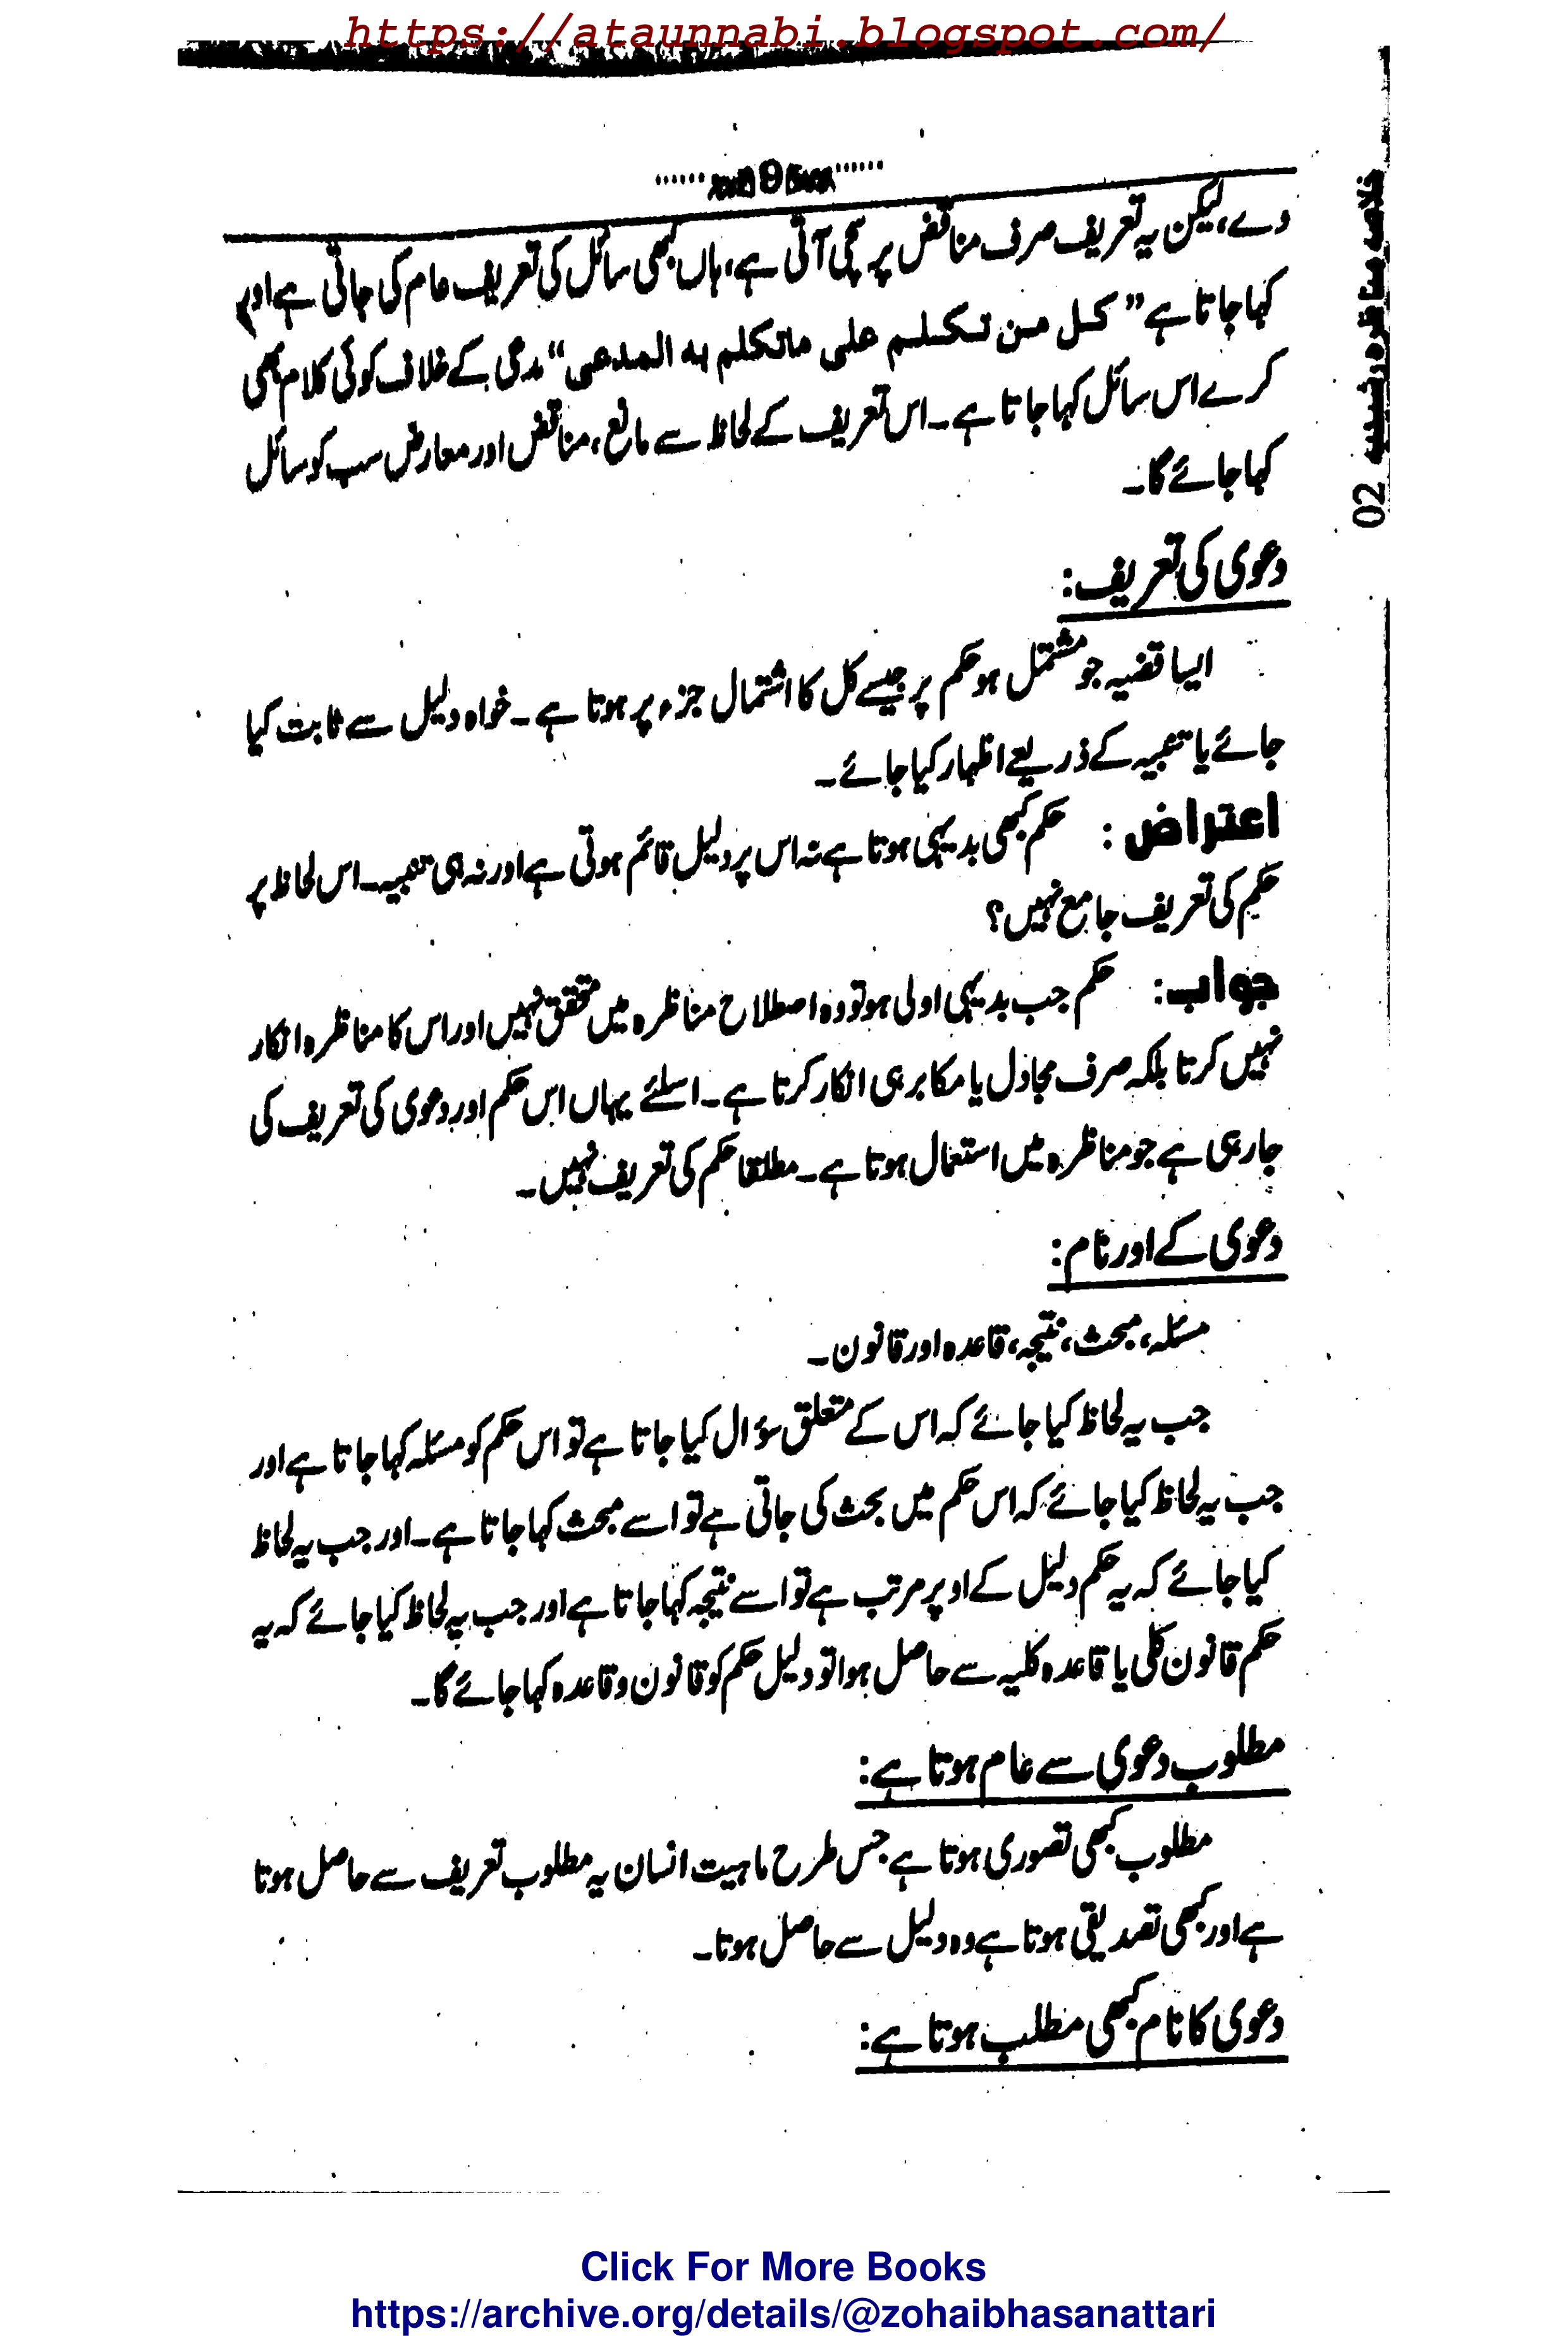 https://ataunnabi.blogspot.com/
9
خلاصہ مناظرہ رشیدیہ 02
دے، لیکن یہ تعریف صرف مناقض پر سچی آتی ہے، ہاں کبھی سائل کی تعریف عام کی جاتی ہے اور
کہا جاتا ہے” کل من تکلم علی ماتکلم بہ المدعی“ مدعی کے خلاف کوئی کلام بھی
کرے اس سائل کہا جاتا ہے۔ اس تعریف کے لحاظ سے مانع، مناقض اور معارض سب کو سائل
کہا جائے گا۔
دعوی کی تعریف:
ایسا قضیہ جو مشتمل ہو حکم پر جیسے کل کا اشتمال جزء پر ہوتا ہے۔ خواہ دلیل سے ثابت کیا
جائے یا تنبیہ کے ذریعے اظہار کیا جائے۔
اعتراض: حکم کبھی بدیہی ہوتا ہے نہ اس پر دلیل قائم ہوتی ہے اور نہ ہی تنبیہ۔ اس لحاظ پر
حکم کی تعریف جامع نہیں؟
جواب: حکم جب بدیہی اولی ہو تو وہ اصطلاح مناظرہ میں متحقق نہیں اور اس کا مناظرہ انکار
نہیں کرتا بلکہ صرف مجادل یا مکابر ہی انکار کرتا ہے۔ اسلئے یہاں اس حکم اور دعوی کی تعریف کی
جا رہی ہے جو مناظرہ میں استعمال ہوتا ہے۔ مطلقا حکم کی تعریف نہیں۔
دعوی کے اور نام:
مسئلہ، مبحث، نتیجہ، قاعدہ اور قانون۔
جب یہ لحاظ کیا جائے کہ اس کے متعلق سؤال کیا جاتا ہے تو اس حکم کو مسئلہ کہا جاتا ہے اور
جب یہ لحاظ کیا جائے کہ اس حکم میں بحث کی جاتی ہے تو اسے مبحث کہا جاتا ہے۔ اور جب یہ لحاظ
کیا جائے کہ یہ حکم دلیل کے اوپر مرتب ہے تو اسے نتیجہ کہا جاتا ہے اور جب یہ لحاظ کیا جائے کہ یہ
حکم قانون کلی یا قاعدہ کلیہ سے حاصل ہوا تو دلیل حکم کو قانون وقاعدہ کہا جائے گا۔
مطلوب دعوی سے عام ہوتا ہے:
مطلوب کبھی تصوری ہوتا ہے جس طرح ماہیت انسان یہ مطلوب تعریف سے حاصل ہوتا
ہے اور کبھی تصدیقی ہوتا ہے وہ دلیل سے حاصل ہوتا۔
دعوی کا نام کبھی مطلب ہوتا ہے:
Click For More Books
https://archive.org/details/@zohaibhasanattari